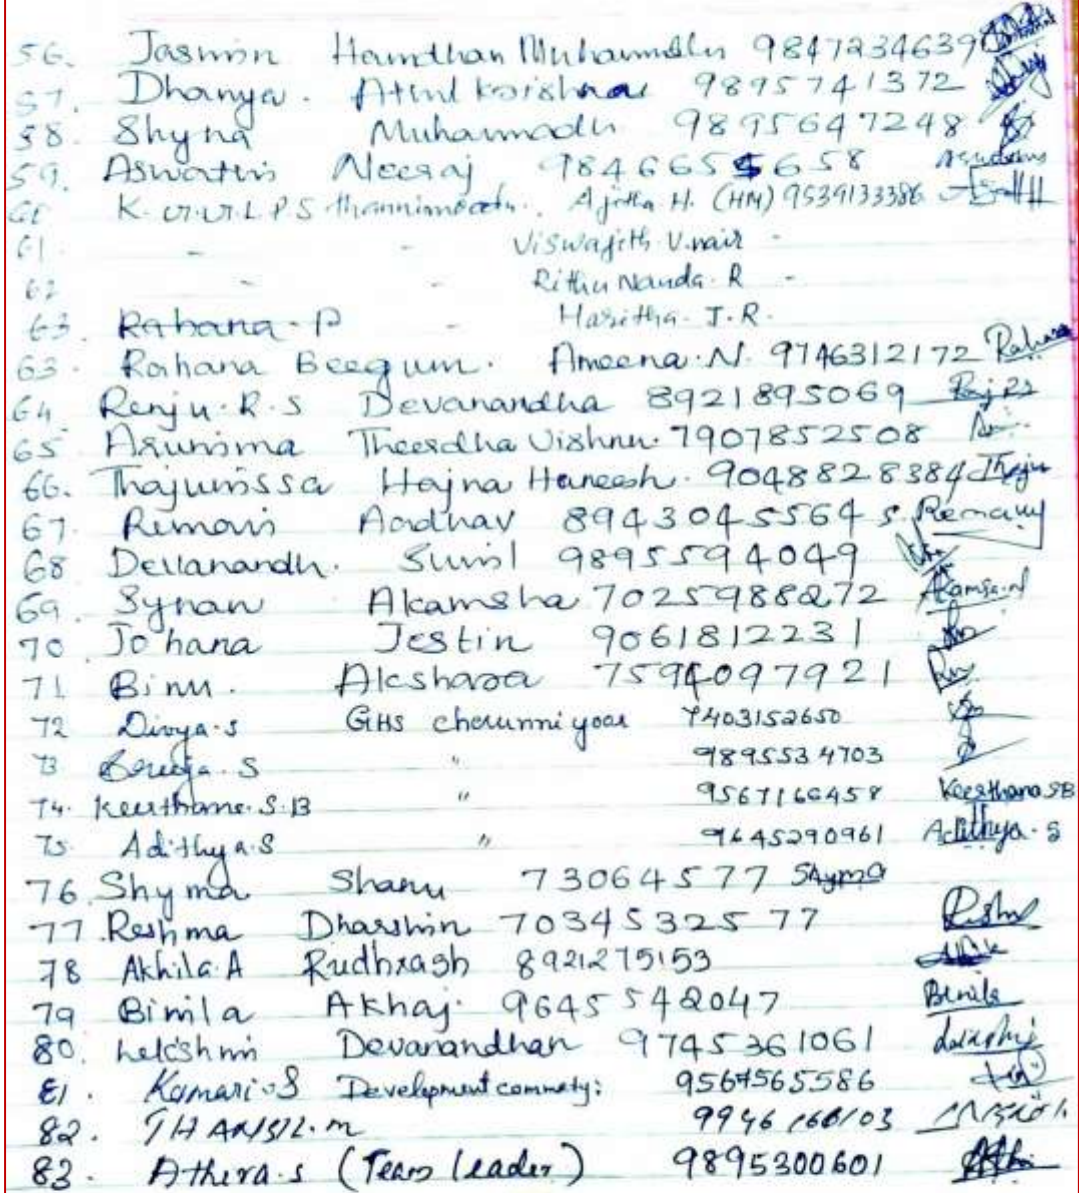 56. Jasmin Hamdhan Muhammed 9847234639
57. Dhanya. Athul Krishna 9895741372
58. Shyna Muhammadh 9895647248
59. Aswathi Neeraj 9846655658
60 K. L.P.S Ajitha H. (HM) 9539133386
61 - - Viswajith V.nair -
62 - - Rithu Nanda. R -
63 Rahana. P - Haritha. J.R.
63. Rahana Beegum. Ameena.N. 9746312172 Rahana
64. Renju.R.S Devanandha 8921895069
65 Arunima Theerdha Vishnu. 7907852508
66. Thajunissa Hajna Haneesh. 9048828384 Thaju
67. Remani Aadhav 8943045564 S. Remany
68 Devanandh. Sunil 9895594049
69. Synan Akamsha 7025988272
70 Johana Jestin 9061812231
71 Binu. Akshara 7594097921
72 Divya.S GHS cherunniyoor 7403152650
73 S " 9895534703
74. Keerthana.S.B " 9567166458 Keerthana SB
75. Adithya.S " 9645290961 Adithya.S
76. Shyma Shanu 73064577 Shyma
77. Reshma Dharshin 7034532577
78 Akhila.A Rudhrash 8921275153
79 Bimla Akhaj. 9645542047
80. Lekshmi Devanandhan 9745361061
81. Kumari.S Development 9567565586
82. m 9946160103
83. Athira.s (Team leader) 9895300601